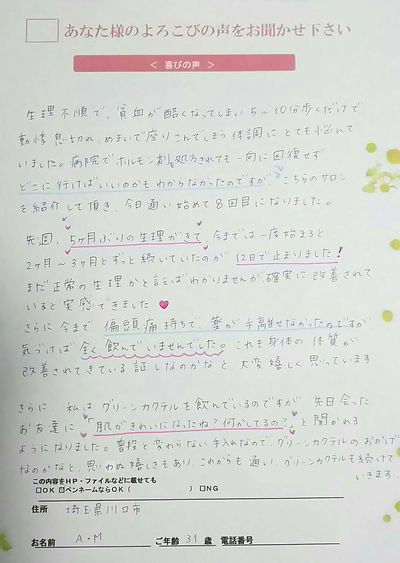 あなた様のよろこびの声をお聞かせ下さい
＜ 喜びの声 ＞
生理不順で、貧血が酷くなってしまい5〜10分歩くだけで
動悸息切れ、めまいで座りこんでしまう体調にとても悩んで
いました。病院でホルモン剤を処方されても一向に回復せず、
どこに行けばいいのかもわからなかったのですが、こちらのサロン
を紹介して頂き、今日通い始めて8回目になりました。
先週、5ヶ月ぶりの生理がきて、今までは一度始まると
2ヶ月〜3ヶ月とずっと続いていたのが12日で止まりました！
まだ正常の生理かと言えばわかりませんが、確実に改善されて
いると実感できました♥
さらに今まで、偏頭痛持ちで薬が手離せなかったのですが
気づけば全く飲んでいませんでした。これも身体の体質が
改善されてきている証しなのかなと、大変嬉しく思っています
さらに、私はグリーンカクテルを飲んでいるのですが、先日会った
お友達に「肌がきれいになったね？何かしてるの？」と聞かれる
ようになりました。普段と変わらない手入れなので、グリーンカクテルのおかげ
なのかなと、思いぬ嬉しさもあり、これからも通い、グリーンカクテルも続けて
いきます。
この内容をHP・ファイルなどに載せても
□OK ☑ペンネームならOK（ ）□NG
住所 埼玉県川口市
お名前 A・M ご年齢 31 歳 電話番号